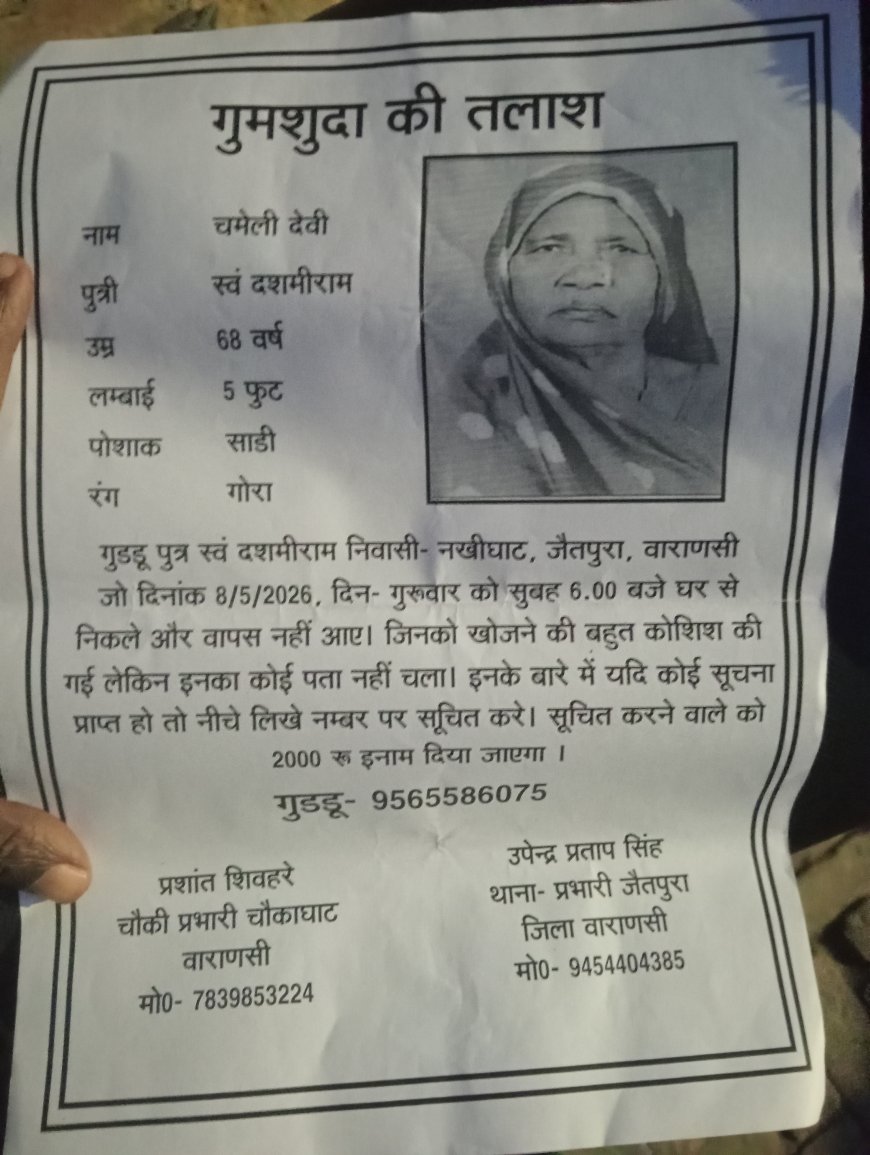 गुमशुदा की तलाश
नाम चमेली देवी
पुत्री स्वं दशमीराम
उम्र 68 वर्ष
लम्बाई 5 फुट
पोशाक साडी
रंग गोरा
गुडडू पुत्र स्वं दशमीराम निवासी- नखीघाट, जैतपुरा, वाराणसी
जो दिनांक 8/5/2026, दिन- गुरूवार को सुबह 6.00 बजे घर से
निकले और वापस नहीं आए। जिनको खोजने की बहुत कोशिश की
गई लेकिन इनका कोई पता नहीं चला। इनके बारे में यदि कोई सूचना
प्राप्त हो तो नीचे लिखे नम्बर पर सूचित करे। सूचित करने वाले को
2000 रू इनाम दिया जाएगा ।
गुडडू- 9565586075
प्रशांत शिवहरे
चौकी प्रभारी चौकाघाट
वाराणसी
मो0- 7839853224
उपेन्द्र प्रताप सिंह
थाना- प्रभारी जैतपुरा
जिला वाराणसी
मो0- 9454404385